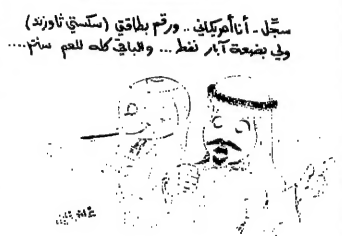 سجّل - أنا أمريكاني .. ورقم بطاقتي (سكستي تاوزند)
ولي بضعة آبار نفط ... والباقي كله للعم سام ....